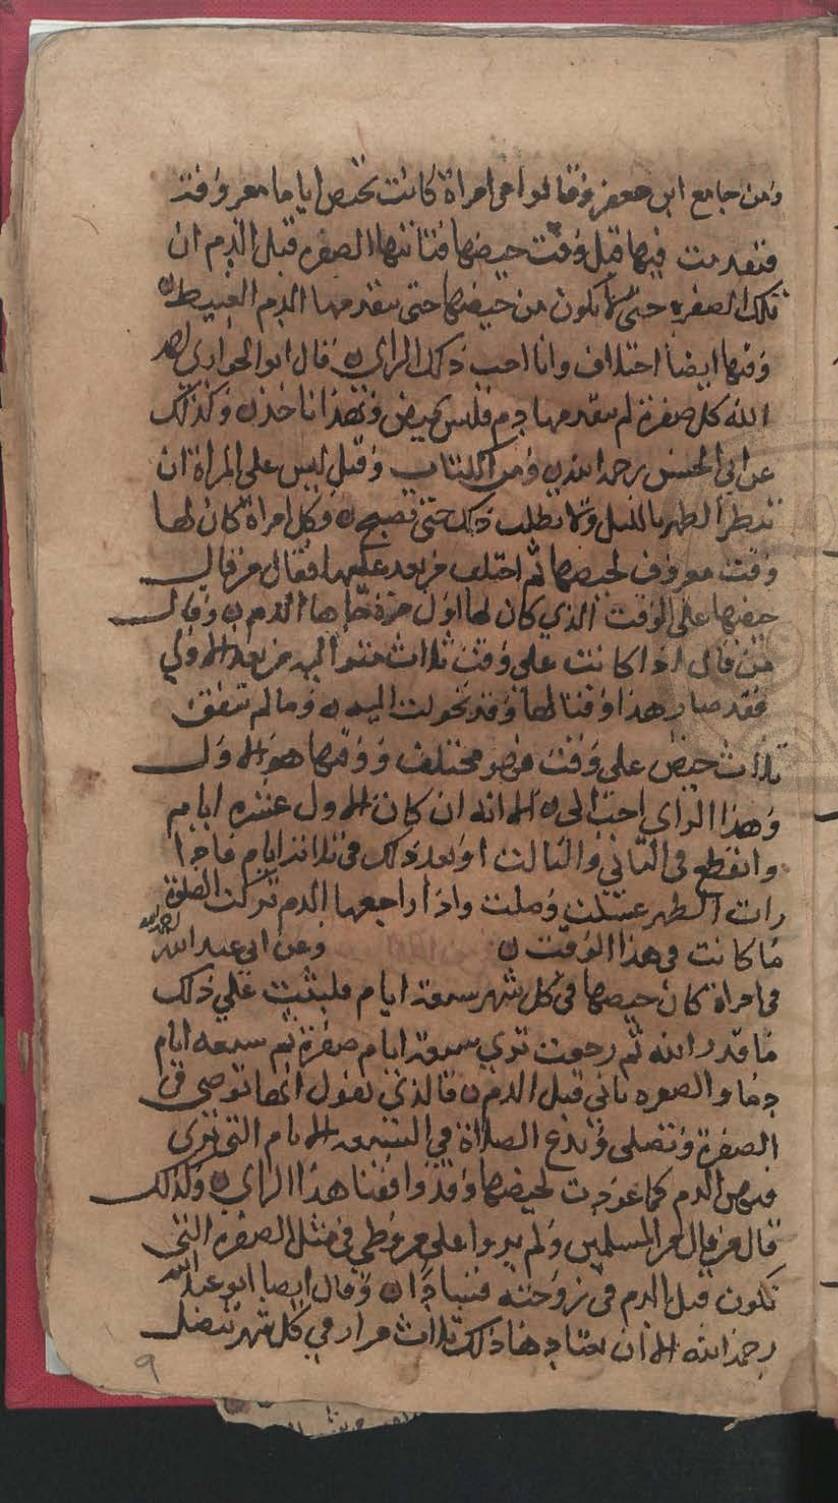 ومن جامع ابن جعفر وقالوا في امراة كانت تحيض اياما معروفة
فتقدمت فيها قبل وقت حيضها فتاتيها الصفرة قبل الدم ان
تلك الصفرة حتى لا تكون من حيضها حتى يتقدمها الدم العبيط
وفيها ايضا اختلاف وانا احب ذلك الراي قال ابو الحواري رحمه
الله كل صفرة لم يتقدمها دم فليس بحيض وبهذا ناخذ وكذلك
عن ابي الحسن رحمه الله ومن الكتاب وقيل ليس على المراة ان
تنظر الطهر بالليل ولا تطلب ذلك حتى تصبح وكل امراة كان لها
وقت معروف لحيضها ثم اختلف من بعد عليها فقال من قال
حيضها على الوقت الذي كان لها اول مرة جاءها الدم وقال
من قال اذا كانت على وقت ثلاث متواليه من بعد الاولي
فقد صار هذا وقتا لها وقد تحولت اليه وما لم تتفق
ثلاث حيض على وقت فهو مختلف ووقتها هو الاول
وهذا الراي احب الي الا انه ان كان الاول عشرة ايام
وانقطع في الثاني والثالث او بعد ذلك في ثلاثة ايام فاذا
رات الطهر غسلت وصلت واذا راجعها الدم تركت الصلوة
ما كانت في هذا الوقت وعن ابي عبد الله رحمه الله
في امراة كان حيضها في كل شهر سبعة ايام فلبثت على ذلك
ما قدر الله ثم رجعت تري سبعة ايام صفرة ثم سبعه ايام
دما والصفره تاتي قبل الدم فالذي نقول انها توضي في
الصفرة وتصلي وتدع الصلاة في السبعة الايام التي تري
فيهن الدم كما عودت لحيضها وقد وافقنا هذا الراي وكذلك
قال من قال من المسلمين ولم يروا على من وطي في مثل الصفره التي
تكون قبل الدم في زوجته فسادا وقال ايضا ابو عبد الله
رحمه الله الا ان يعتادها ذلك ثلاث مرار في كل شهر تتصل
٩